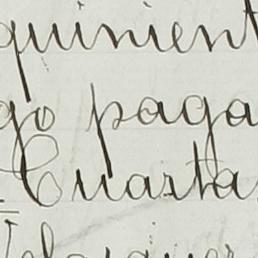 quinient
go paga
Cuarta